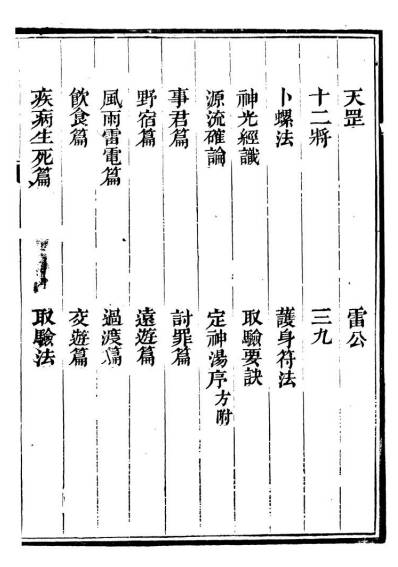 天罡 雷公
十二將 三九
卜螺法 護身符法
神光經讖 取驗要訣
源流確論 定神湯序方附
事君篇 討罪篇
野宿篇 遠遊篇
風雨雷電篇 過渡篇
飲食篇 交遊篇
疾病生死篇 取驗法